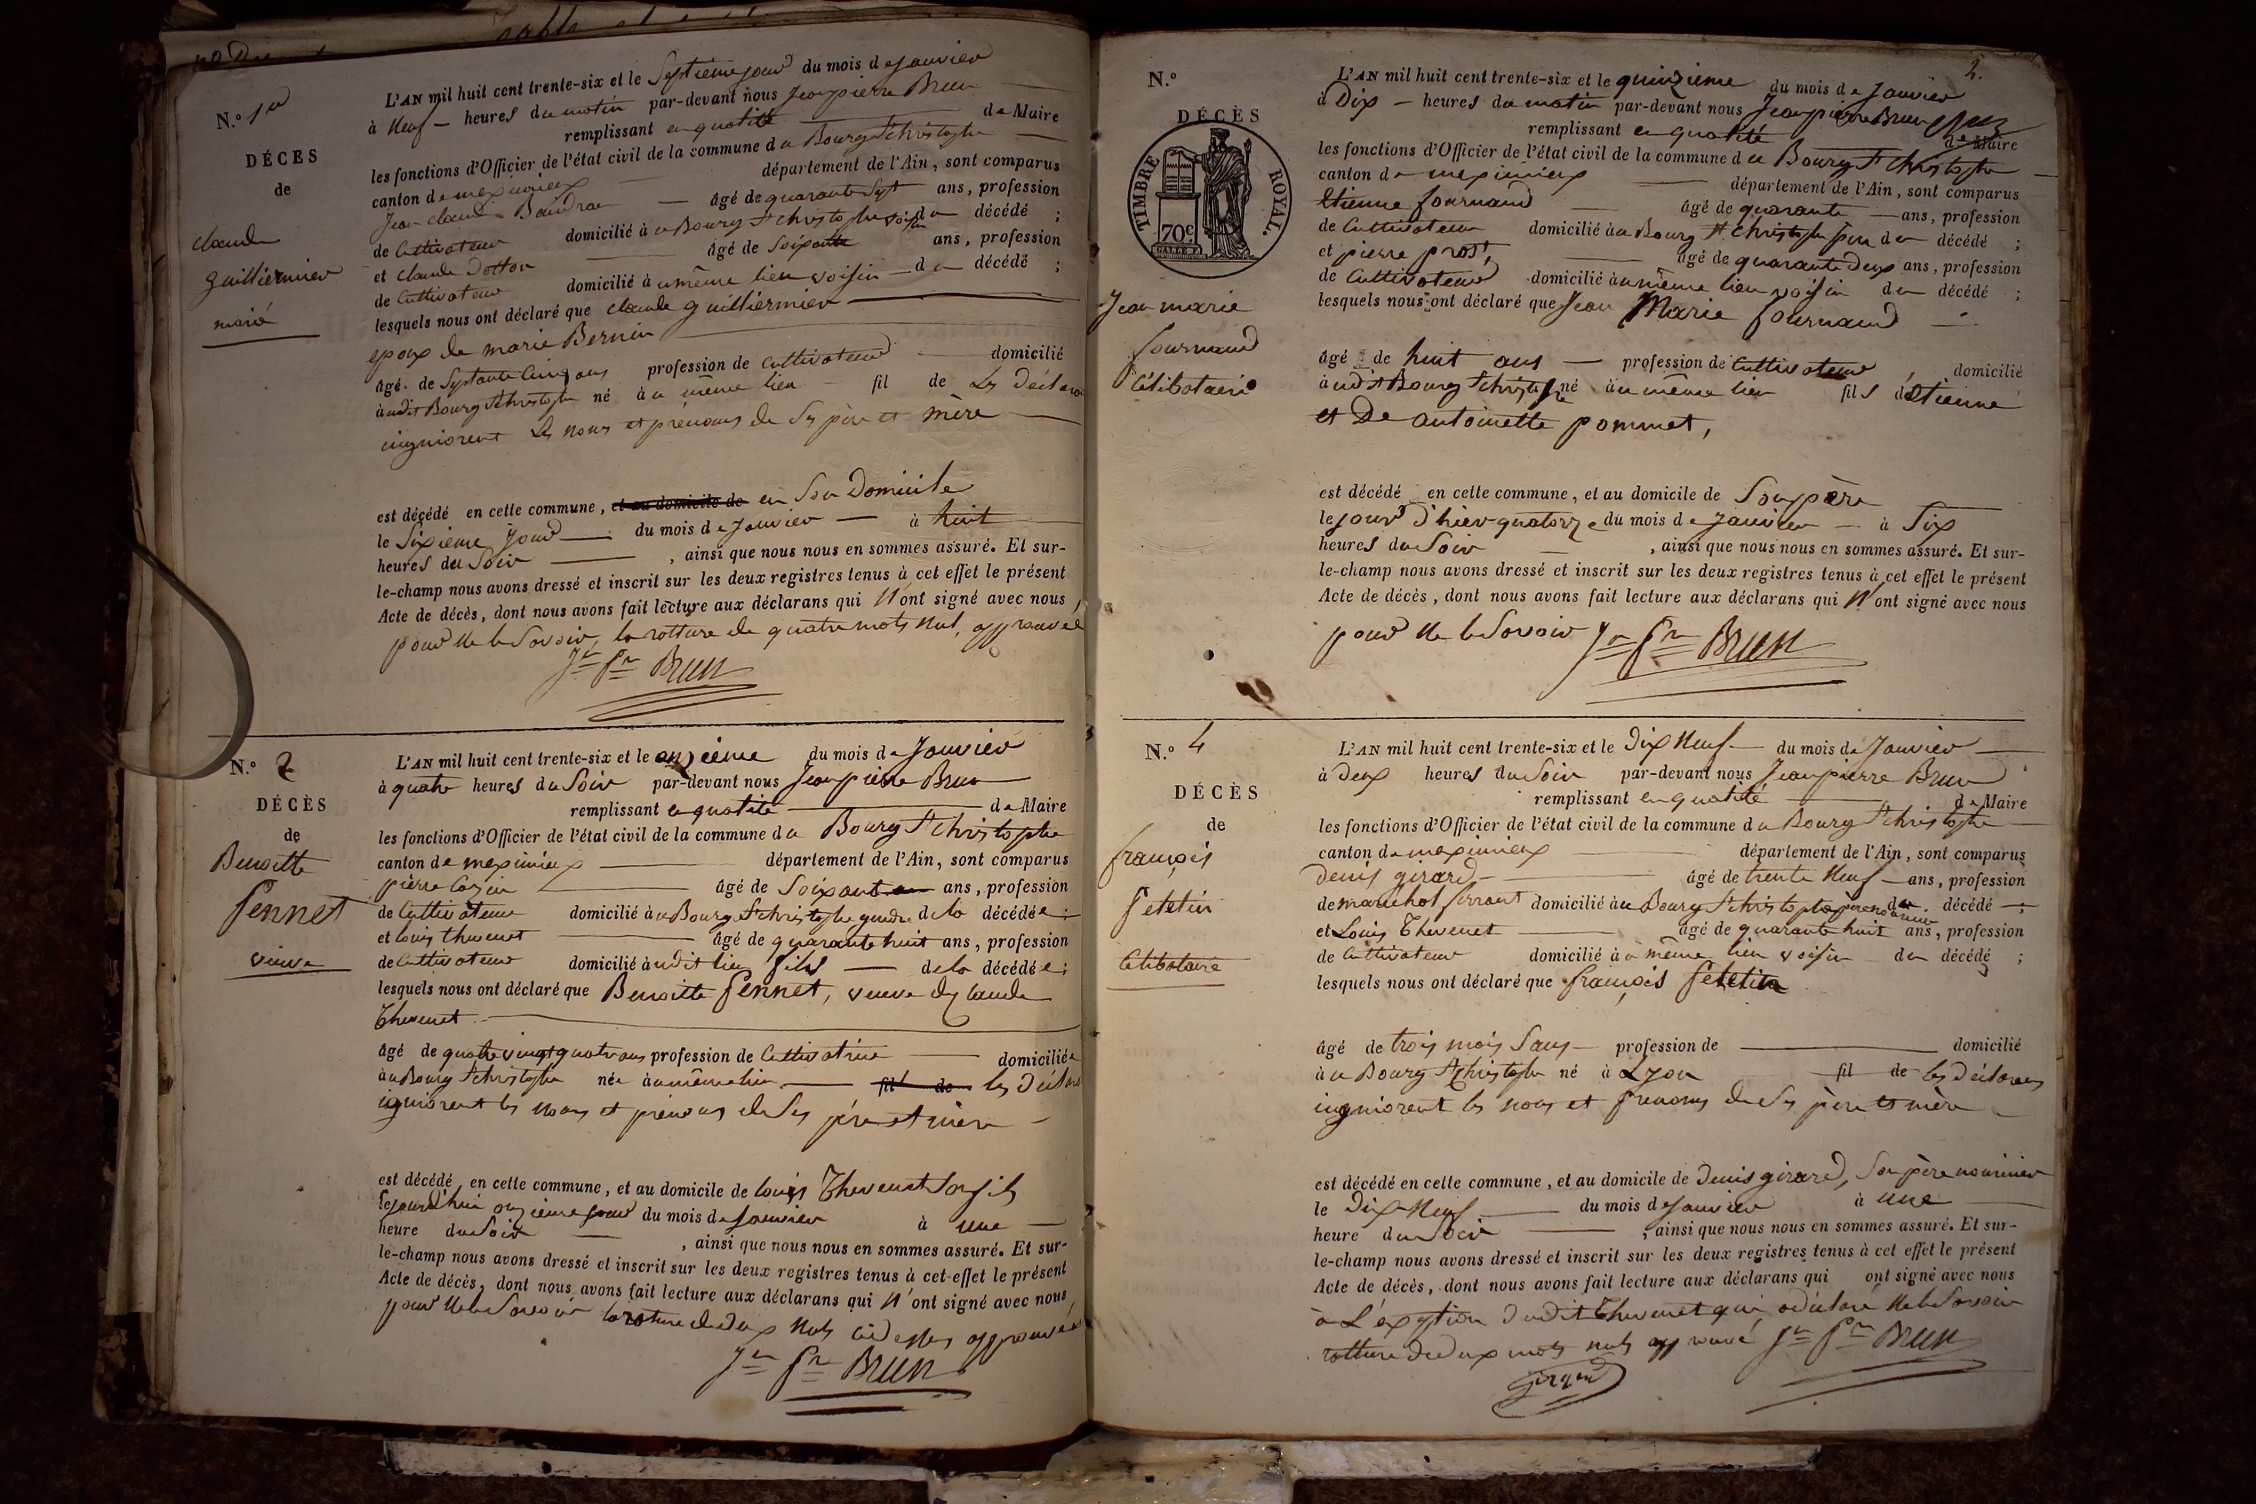 N.º 1er
DÉCES
de
claude
guilliermier
marié
L'AN mil huit cent trente-six et le Septiemejour du mois de Janvier
à Neuf — heures du matin par-devant nous Jeanpierre Brun
remplissant en qualité de Maire
les fonctions d'Officier de l'état civil de la commune du Bourg St christophe
canton de meximieux département de l'Ain, sont comparus
Jean claude Baudran âgé de quarante Sept ans, profession
de Cultivateur domicilié au Bourg St christophe voisin du décédé ;
et claude Dotton âgé de Soixante ans, profession
de Cultivateur domicilié à u même lieu voisin du décédé ;
lesquels nous ont déclaré que claude guilliermier
epoux de marie Bernin
âgé de Septante Cinq ans profession de Cultivateur domicilié
à udit Bourg St christophe né à u même lieu fil de Les Déclarans
ingniorent les noms et prénoms de Ses père et mère
est décédé en cette commune, et au domicile de en Son Domicile
le Sixieme jour du mois de Janvier à huit
heures du Soir , ainsi que nous nous en sommes assuré. Et sur-
le-champ nous avons dressé et inscrit sur les deux registres tenus à cet effet le présent
Acte de décès, dont nous avons fait lecture aux déclarans qui N'ont signé avec nous,
pour Ne le Savoir, la rotture de quatre mots Nul, approuvée
Jn Pre Brun
N.º 2
DÉCÈS
de
Benoitte
Pennet
veuve
L'AN mil huit cent trente-six et le onzieme du mois de Janvier
à quatre heures du Soir par-devant nous Jeanpierre Brun
remplissant en qualité de Maire
les fonctions d'Officier de l'état civil de la commune du Bourg St christophe
canton de meximieux département de l'Ain, sont comparus
pierre Cozin âgé de Soixante ans, profession
de Cultivateur domicilié au Bourg St christophe gendre de la décédée ;
et louis thevenet âgé de quarante huit ans, profession
de Cultivateur domicilié à udit lieu fils de la décédée ;
lesquels nous ont déclaré que Benoitte Pennet, veuve de Claude
Thevenet
âgé de quatre vingt quatre ans profession de Cultivatrice domiciliée
à u Bourg St christophe née à u même lieu fil de les Déclarans
ingniorent les noms et prénoms de Ses père et mère
est décédé en cette commune, et au domicile de louis Thevenet Son fils
le jourd'hui onzieme jour du mois de Janvier à une
heure du Soir , ainsi que nous nous en sommes assuré. Et sur-
le-champ nous avons dressé et inscrit sur les deux registres tenus à cet effet le présent
Acte de décès, dont nous avons fait lecture aux déclarans qui N'ont signé avec nous,
pour Ne le Savoir la roture de deux Nuls ci dessus approuvée
Jn Pre Brun
2.
N.º
DÉCÈS
TIMBRE ROYAL.
70c
Jean marie
fournand
Célibotaire
L'AN mil huit cent trente-six et le quinzieme du mois de Janvier
à Dix — heures du matin par-devant nous Jeanpierre Brun
remplissant en qualité de Maire
les fonctions d'Officier de l'état civil de la commune du Bourg St christophe
canton de meximieux département de l'Ain, sont comparus
Etienne fournand âgé de quarante ans, profession
de Cultivateur domicilié au Bourg St christophe père du décédé ;
et pierre prost, âgé de quarante Deux ans, profession
de Cultivateur domicilié à u même lieu voisin du décédé ;
lesquels nous ont déclaré que Jean Marie fournand
âgé de huit ans — profession de Cultivateur, domicilié
à udit Bourg St christophe né à u même lieu fils d'Etienne
et De antoinette pommet,
est décédé en cette commune, et au domicile de Son père
le jour d'hier quatorze du mois de Janvier à Six
heures du Soir , ainsi que nous nous en sommes assuré. Et sur-
le-champ nous avons dressé et inscrit sur les deux registres tenus à cet effet le présent
Acte de décès, dont nous avons fait lecture aux déclarans qui N'ont signé avec nous
pour Ne le Savoir Jn Pre Brun
N.º 4
DÉCÈS
de
françois
Petetin
Célibotaire
L'AN mil huit cent trente-six et le Dix Neuf du mois de Janvier
à Deux heures du Soir par-devant nous Jeanpierre Brun
remplissant en qualité de Maire
les fonctions d'Officier de l'état civil de la commune du Bourg St christophe
canton de meximieux département de l'Ain, sont comparus
Denis girard âgé de trente Neuf ans, profession
de maréchal ferrant domicilié au Bourg St christophe père nourricier du décédé ;
et Louis Thevenet âgé de quarante huit ans, profession
de Cultivateur domicilié à u même lieu voisin du décédé ;
lesquels nous ont déclaré que françois Petetin
âgé de trois mois Sans profession de domicilié
à u Bourg St christophe né à Lyon fil de les Déclarans
ingniorent les noms et prenoms de Ses père et mère
est décédé en cette commune, et au domicile de Denis girard, Son père nourricier
le Dix Neuf du mois de Janvier à une
heure du Soir , ainsi que nous nous en sommes assuré. Et sur-
le-champ nous avons dressé et inscrit sur les deux registres tenus à cet effet le présent
Acte de décès, dont nous avons fait lecture aux déclarans qui ont signé avec nous
à L'exeption dudit Thevenet qui a déclaré Ne le Savoir
rotture de deux mots nuls approuvé Jn Pre Brun
Girard